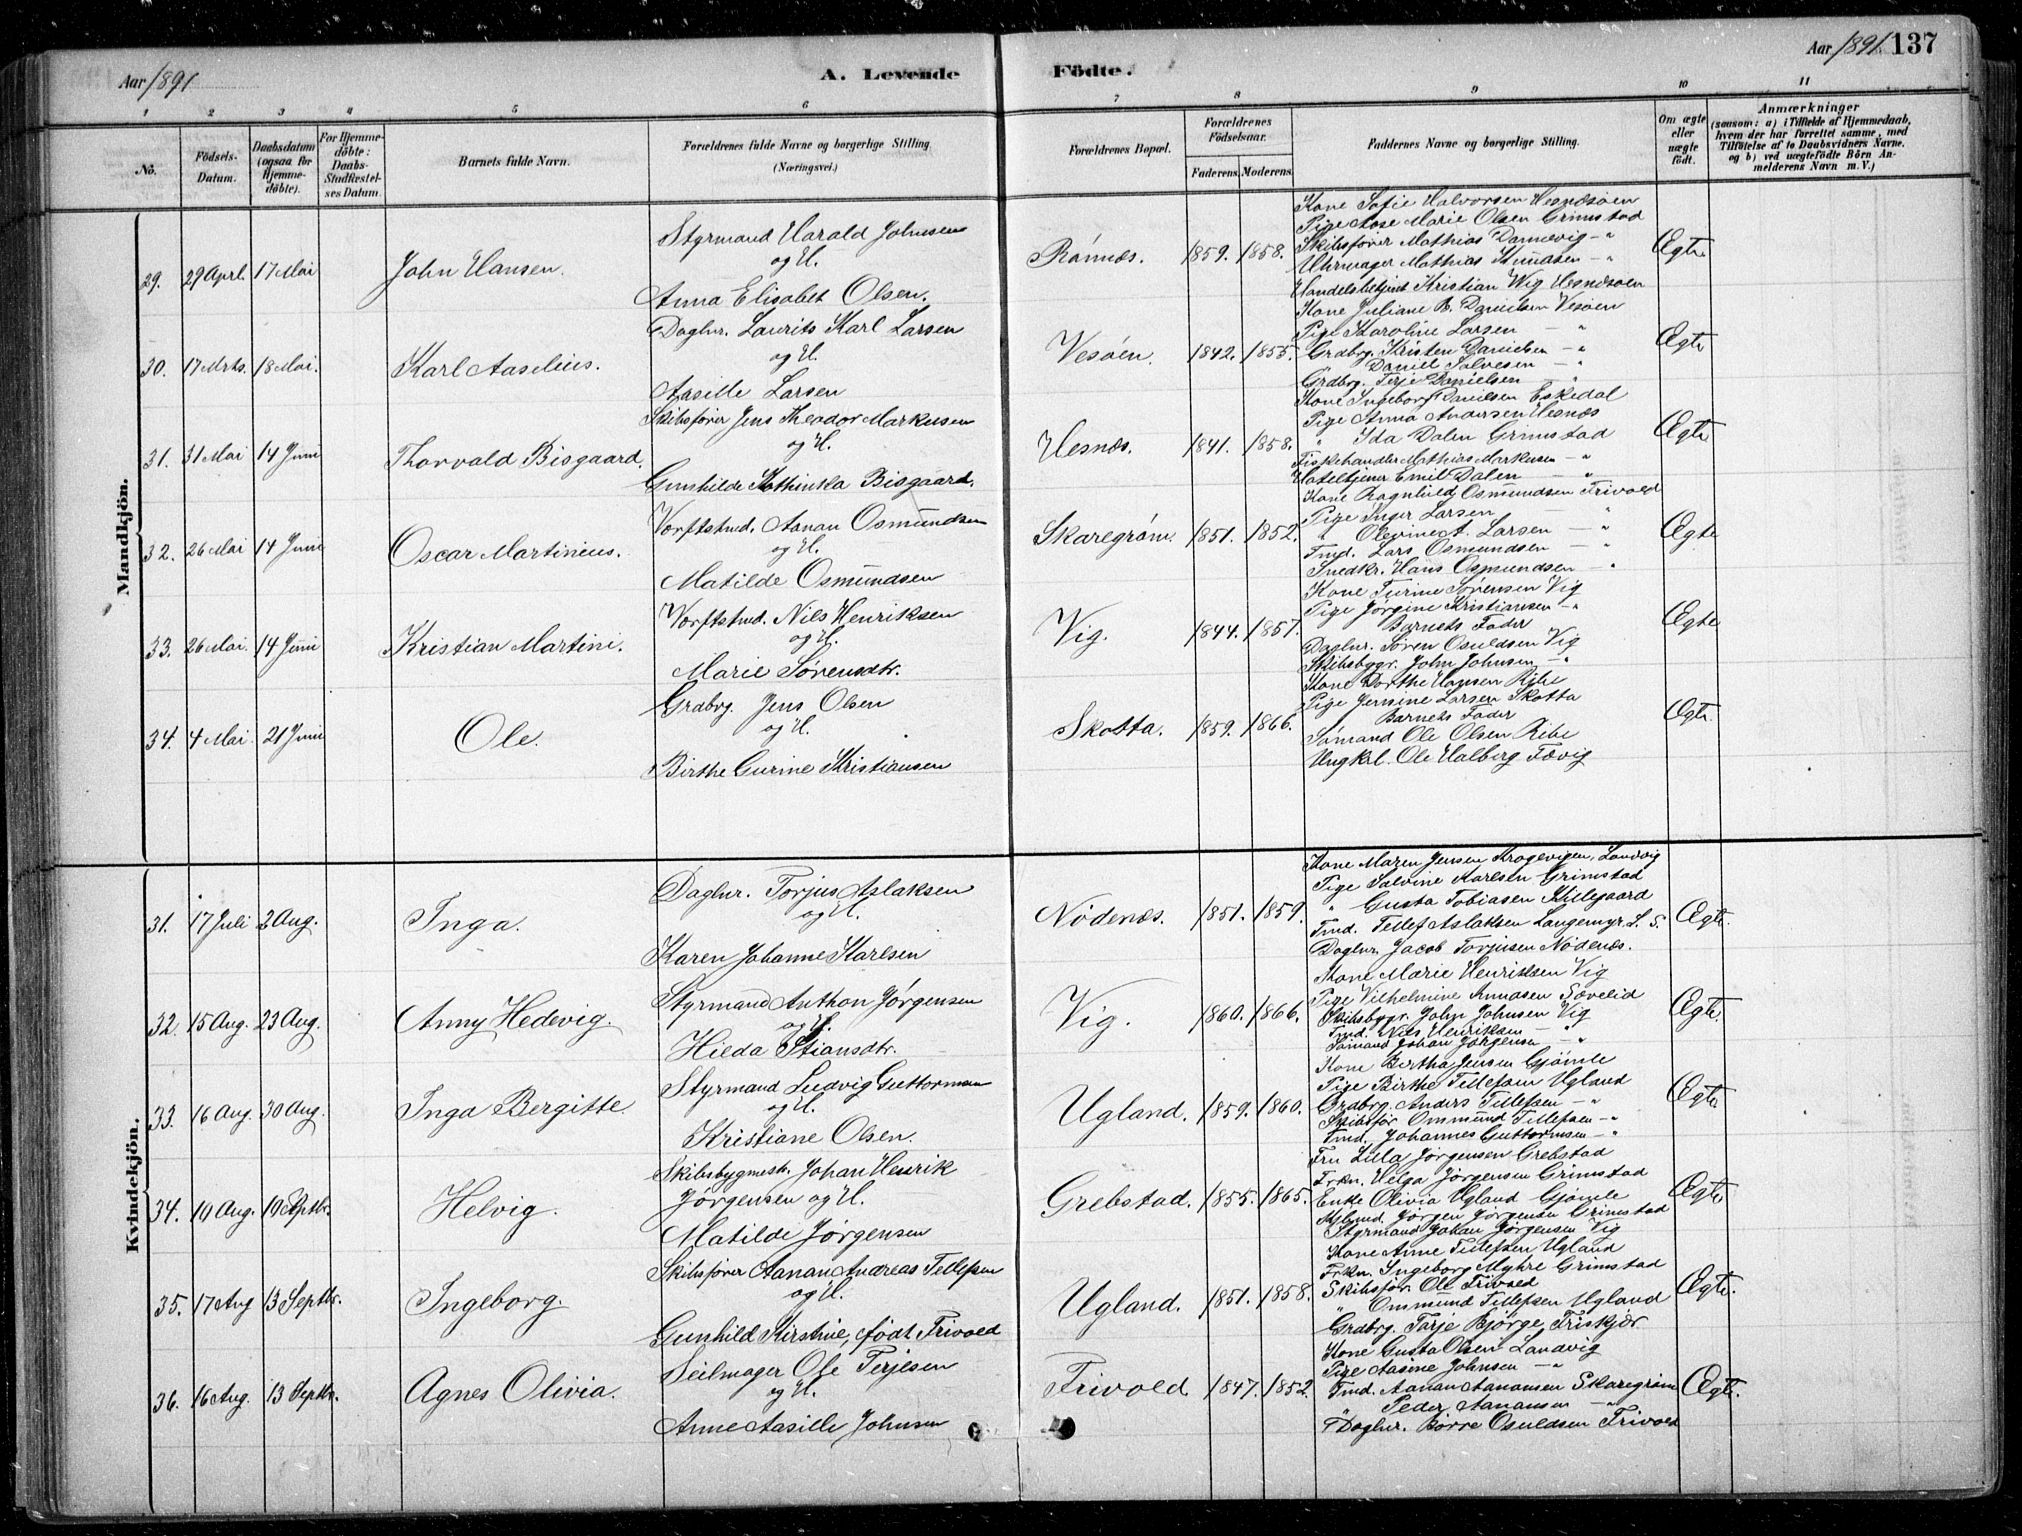 Aar 1891
A. Levende Födte.
Aar 1891. 137
1 2 3 4 5 6 7 8 9 10 11
No.
Födsels-Datum.
Daabsdatum (ogsaa for Hjemme-döbte).
For Hjemme-döbte: Daabs-Stadfæstel-ses Datum.
Barnets fulde Navn.
Forældrenes fulde Navne og borgerlige Stilling
(Næringsvei.)
Forældrenes Bopæl.
Forældrenes Födselsaar.
Faderens. Moderens.
Faddernes Navne og borgerlige Stilling.
Om ægte eller uægte födt.
Anmærkninger
(saasom: a) i Tilfælde af Hjemmedaab, hvem der har forrettet samme, med Tilföielse af to Daabsvidners Navne, og b) ved uægtefödte Börn Anmelderens Navn m. V.)
Mandkjön.
29. 29 Aprl. 17 Mai
John Hansen.
Styrmand Harald Johnsen
og H.
Anna Elisabet Olsen.
Rønnæs. 1859. 1858.
Kone Sofie Halvorsen Hesnæsøen
Pige Aase Marie Olsen Grimstad
Skibsfører Mathias Dannevig - "
Uhrmager Mathias Knudsen - "
Handelsbetjent Kristian Wig Hesnæsøen
Ægte.
30. 17 Mrts. 18 Mai.
Karl Aaselius.
Daglnr. Laurits Karl Larsen
og H.
Aasille Larsen
Vesøen. 1842. 1855.
Kone Juliane B. Danielsen Vesøen
Pige Karoline Larsen - "
Grdbrg. Kristen Danielsen - "
Daniel Salvesen - "
Grdbrg. Terje Danielsen - "
Ægte
31. 31 Mai 14 Juni
Thorvald Bisgaard.
Skibsfører Jens Theodor Markusen
og H.
Gunhilde Kathinka Bisgaard.
Hesnæs. 1841. 1858.
Kone Ingeborg Danielsen Eskedal
Pige Anna Andersen Hesnæs
" Ida Dalen Grimstad
Fiskehandler Mathias Markusen - "
Hoteltjener Emil Dalen - "
Ægte
32. 26 Mai 14 Juni
Oscar Martinius.
Værftstmd. Aanan Osmundsen
og H.
Matilde Osmundsen
Skaregrøm. 1851. 1852.
Kone Ragnhild Osmundsen Frivold
Pige Inger Larsen - "
" Olevine A. Larsen - "
Tmd. Lars Osmundsen - "
Snedkr. Hans Osmundsen - "
Ægte
33. 26 Mai. 14 Juni
Kristian Martini.
Værftstmd. Nils Henriksen
og H.
Marie Sørensdtr.
Vig. 1844. 1857.
Kone Turine Sørensen Vig
Pige Jørgine Kristiansen - "
Barnets Fader
Daglnr. Søren Osuldsen Vig
Skibsbygr. John Johnsen - "
Ægte
34. 4 Mai. 21 Juni
Ole.
Grdbrg. Jens Olsen
og H.
Birthe Gurine Kristiansen
Skotta. 1859. 1866.
Kone Dorthe Hansen Ribe
Pige Jensine Larsen Skotta
Barnets Fader
Sømand Ole Olsen Ribe
Ungkrl. Ole Halberg Fævig
Ægte
Kvindekjön.
31. 17 Juli 2 Aug.
Inga.
Daglnr. Torjus Aslaksen
og H.
Karen Johanne Karlsen
Nødenæs. 1851. 1859.
Kone Maren Jensen Krogevigen, Landvig
Pige Salvine Karlsen Grimstad
" Gusta Tobiasen Killegaard
Tmd. Tellef Aslaksen Langemyr L. S.
Daglnr. Jacob Torjusen Nødenæs.
Ægte.
32. 15 Aug. 23 Aug.
Anny Hedevig.
Styrmand Anthon Jørgensen
og H.
Hilda Stiansdtr.
Vig. 1860. 1866.
Kone Marie Henriksen Vig
Pige Vilhelmine Knudsen Sævelid
Skibsbygr. John Johnsen Vig
Tmd. Nils Henriksen - "
Sømand Johan Jørgensen - "
Ægte.
33. 16 Aug. 30 Aug.
Inga Bergitte.
Styrmand Ludvig Guttormsen
og H.
Kristiane Olsen.
Ugland. 1859. 1860.
Kone Birtha Jensen Gjømle
Pige Birthe Tellefsen Ugland
Grdbrg. Anders Tellefsen - "
Skibsfør Ommund Tellefsen - "
Tmd. Johannes Guttormsen - "
Ægte
34. 10 Aug. 10 Septbr.
Helvig.
Skibsbygmestr. Johan Henrik
Jørgensen og H.
Matilde Jørgensen
Grebstad. 1855. 1865.
Fru Lilla Jørgensen Grebstad
Frkn. Helga Jørgensen Grimstad
Enke Olivia Ugland Gjømle
Jørgen Jørgensen Grimstad
Styrmand Johan Jørgensen Vig
Ægte
35. 17 Aug 13 Septbr.
Ingeborg.
Skibsfører Aanan Andreas Tellefsen
og H.
Gunhild Kirstine, født Frivold
Ugland. 1851. 1858.
Kone Anne Tellefsen Ugland
Frkn. Ingeborg Myhre Grimstad
Skibsfør. Ole Frivold
" Ommund Tellefsen Ugland
Grdbrg. Tarje Bjørge, Friskjær
Ægte.
36. 16 Aug. 13 Septbr.
Agnes Olivia.
Seilmager Ole Terjesen
og H.
Anne Aasille Johnsen
Frivold. 1847. 1852.
Kone Gusta Olsen Landvig
Pige Aasine Johnsen - "
Tmd. Aanan Aanansen Skaregrøm
" Peder Aanansen - "
Daglnr. Børre Osuldsen Frivold
Ægte.